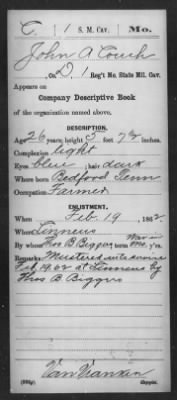 C. 1 S. M. Cav. Mo.
John A Couch
, Co. D, 1 Reg't Mo. State Mil. Cav.
Appears on
Company Descriptive Book
of the organization named above.
DESCRIPTION.
Age 26 years; height 5 feet 7½ inches.
Complexion light
Eyes blue; hair dark
Where born Bedford Tenn
Occupation Farmer
ENLISTMENT.
When Feb. 19, 1862.
Where Linneus
By whom Thos B Biggers, term y'rs.
Remarks: Mustered into service
Feb 19.62 at Linneus by
Thos B Biggers
Van Vranken
Copyist.